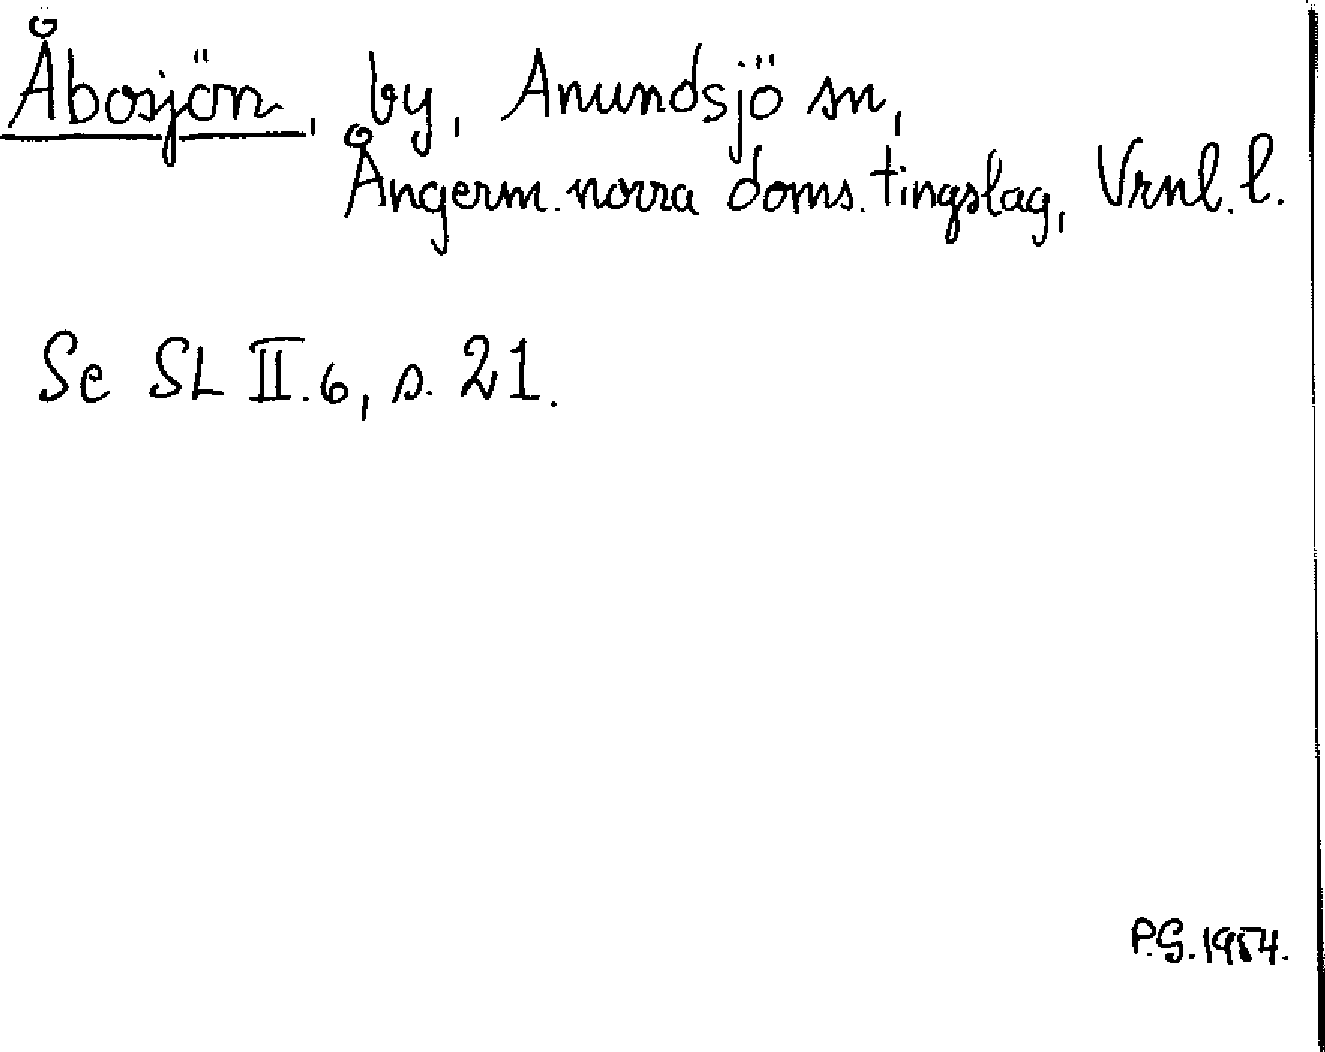 Åbosjön, by, Anundsjö sn,
Ångerm. norra doms. tingslag, Vrnl. l.
Se SL II.6, s. 21.
P.G. 1954.